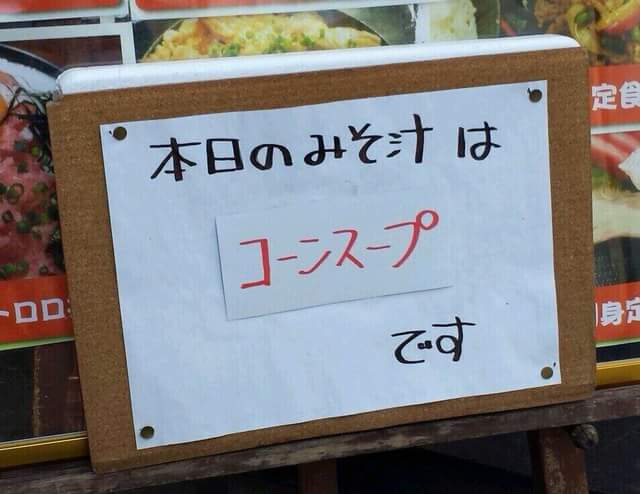 本日のみそ汁は
コーンスープ
です
定食
トロロ
身定